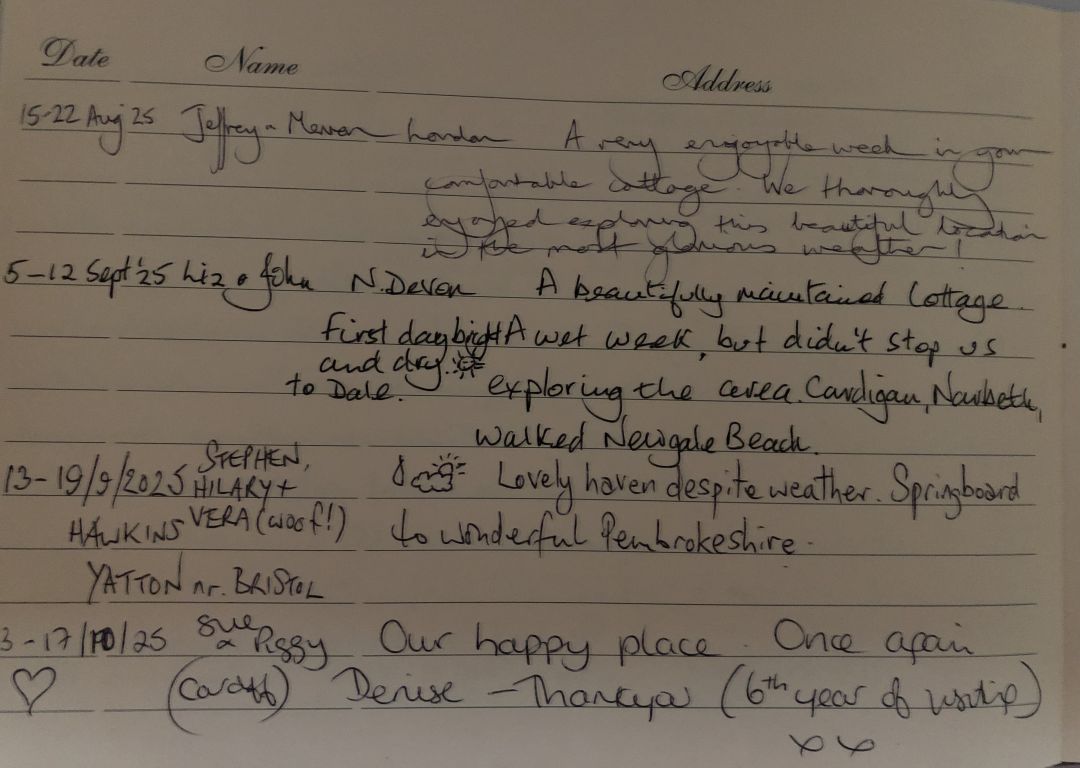 Date Name Address
15-22 Aug 25 Jeffrey + London A very enjoyable week in your
comfortable cottage. We thoroughly
enjoyed exploring this beautiful location
in the most glorious weather!
5-12 Sept '25 Liz & John N. Devon A beautifully maintained Cottage.
First day bright A wet week, but didn't stop us
and dry.
to Dale. exploring the area. Cardigan, Narbeth,
Walked Newgale Beach.
13-19/9/2025 STEPHEN,
HILARY + Lovely haven despite weather. Springboard
HAWKINS VERA (woof!) to wonderful Pembrokeshire.
YATTON nr. BRISTOL
3-17/10/25 Sue
& Peggy Our happy place. Once again
♡ (Cardiff) Denise - Thankyou (6th year of visiting)
x x